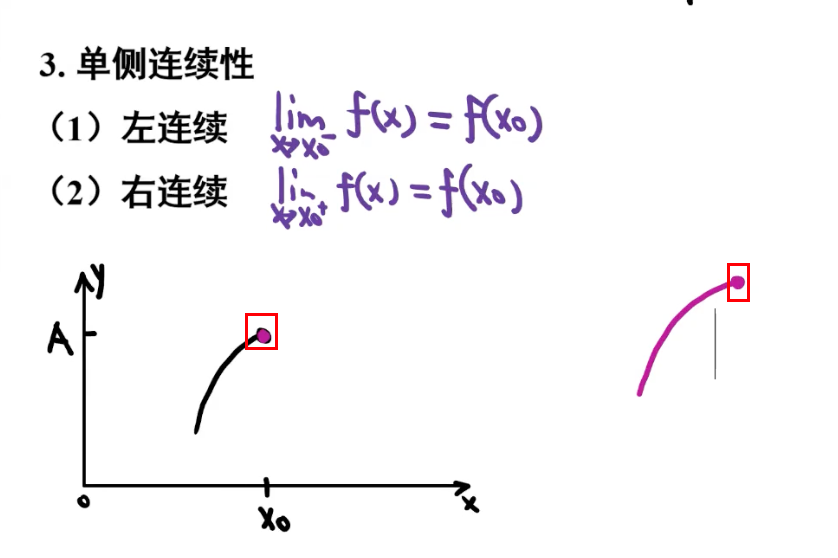 3. 单侧连续性
（1）左连续 lim x→x₀⁻ f(x) = f(x₀)
（2）右连续 lim x→x₀⁺ f(x) = f(x₀)
y
A
0
x₀
x